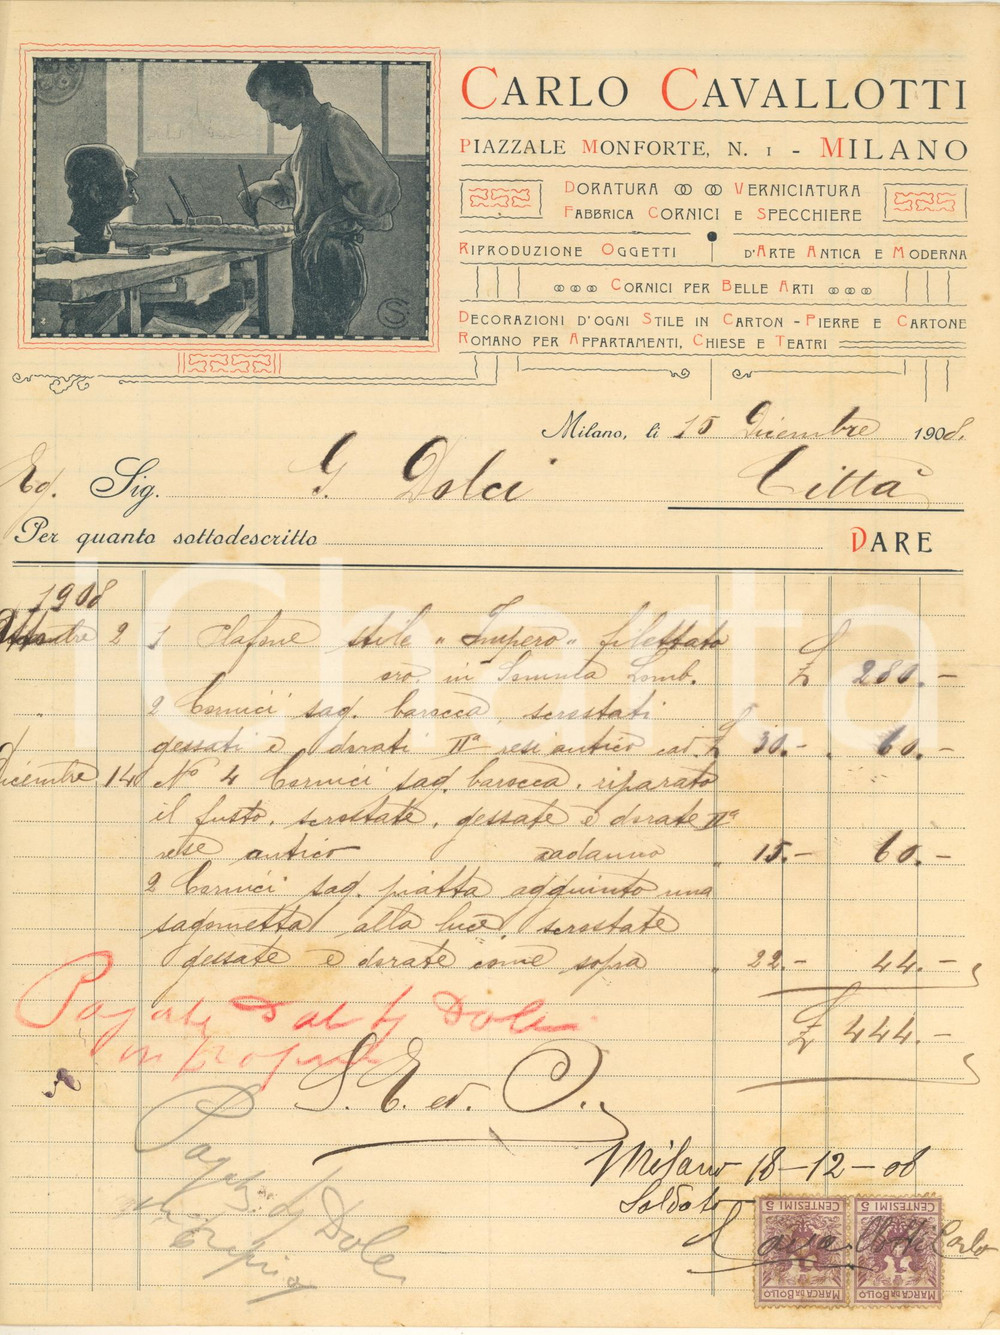 CARLO CAVALLOTTI
PIAZZALE MONFORTE, N. 1 - MILANO
DORATURA VERNICIATURA
FABBRICA CORNICI E SPECCHIERE
RIPRODUZIONE OGGETTI D'ARTE ANTICA E MODERNA
CORNICI PER BELLE ARTI
DECORAZIONI D'OGNI STILE IN CARTON - PIERRE E CARTONE
ROMANO PER APPARTAMENTI, CHIESE E TEATRI
Milano, li 15 Dicembre 1908.
Eg. Sig. G. Dolci Città
Per quanto sottodescritto DARE
1908
2 1 Plafone stile "Impero" filettato £ 280.-
oro in Lomb.
" 2 Cornici sag. barocca, scrostati
gessati e dorati IIa resi antico cad. £ 30.- " 60.-
Dicembre 14 No 4 Cornici sag. barocca, riparato
il fusto, scrostate, gessate e dorate IIa
rese antico cadauno " 15.- 60.-
2 Cornici sag. piatta aggiunto una
sagometta alla luce, scrostate
gessate e dorate come sopra " 22.- 44.-
£ 444.-
Pagate Dal G Dolci
in proprio
S. E. ed O.
Pagate G Dolci
Milano 18-12-08
Saldato
Cavallotti Carlo
CENTESIMI 5
MARCA DA BOLLO
CENTESIMI 5
MARCA DA BOLLO
iCharta